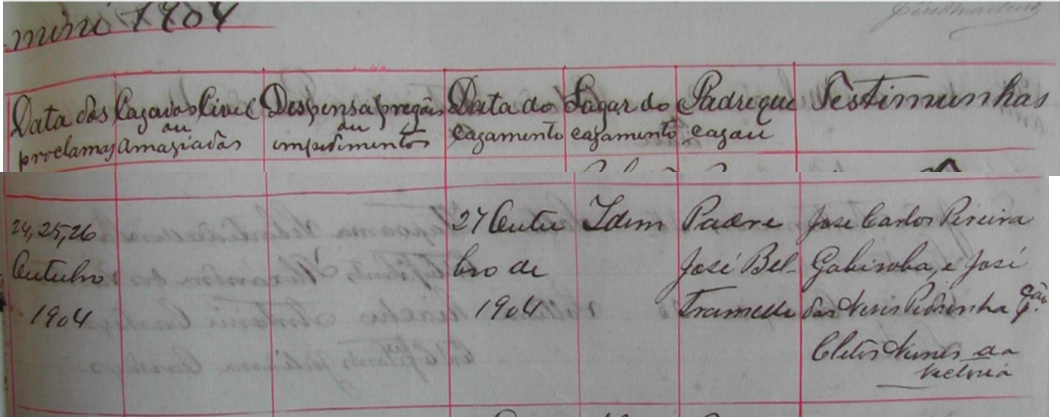 1904
Data dos proclamas
Cazados Civel ou amaziados
Despensa pregão ou impedimento
Data do cazamento
Lugar do cazamento
Padre que cazou
Testimunhas
24, 25, 26
Outubro
1904
27 Outu
bro de
1904
Idem
Padre
José Bel-
tramello
José Carlos Pereira
Gabiroba, e José
das Neves Pedrinha
Cleto Nunes da
Victoria